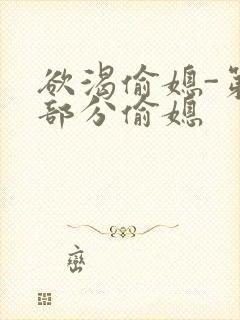 欲渴偷媳-第
部分偷媳
峦